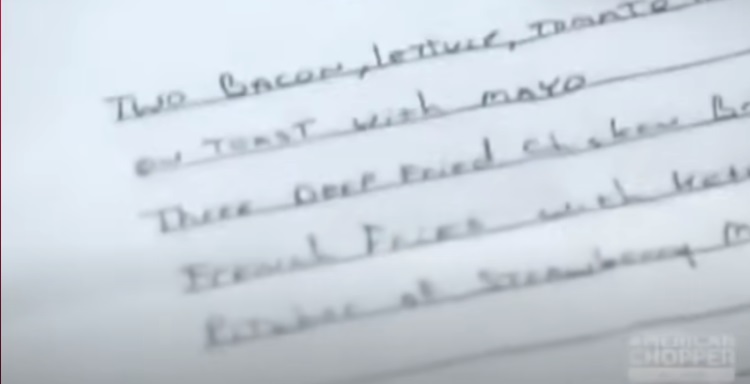 Two Bacon, lettuce, Tomato
on Toast with mayo
Three Deep Fried Chicken
French Fries with
Pitcher of Strawberry
AMERICAN
CHOPPER